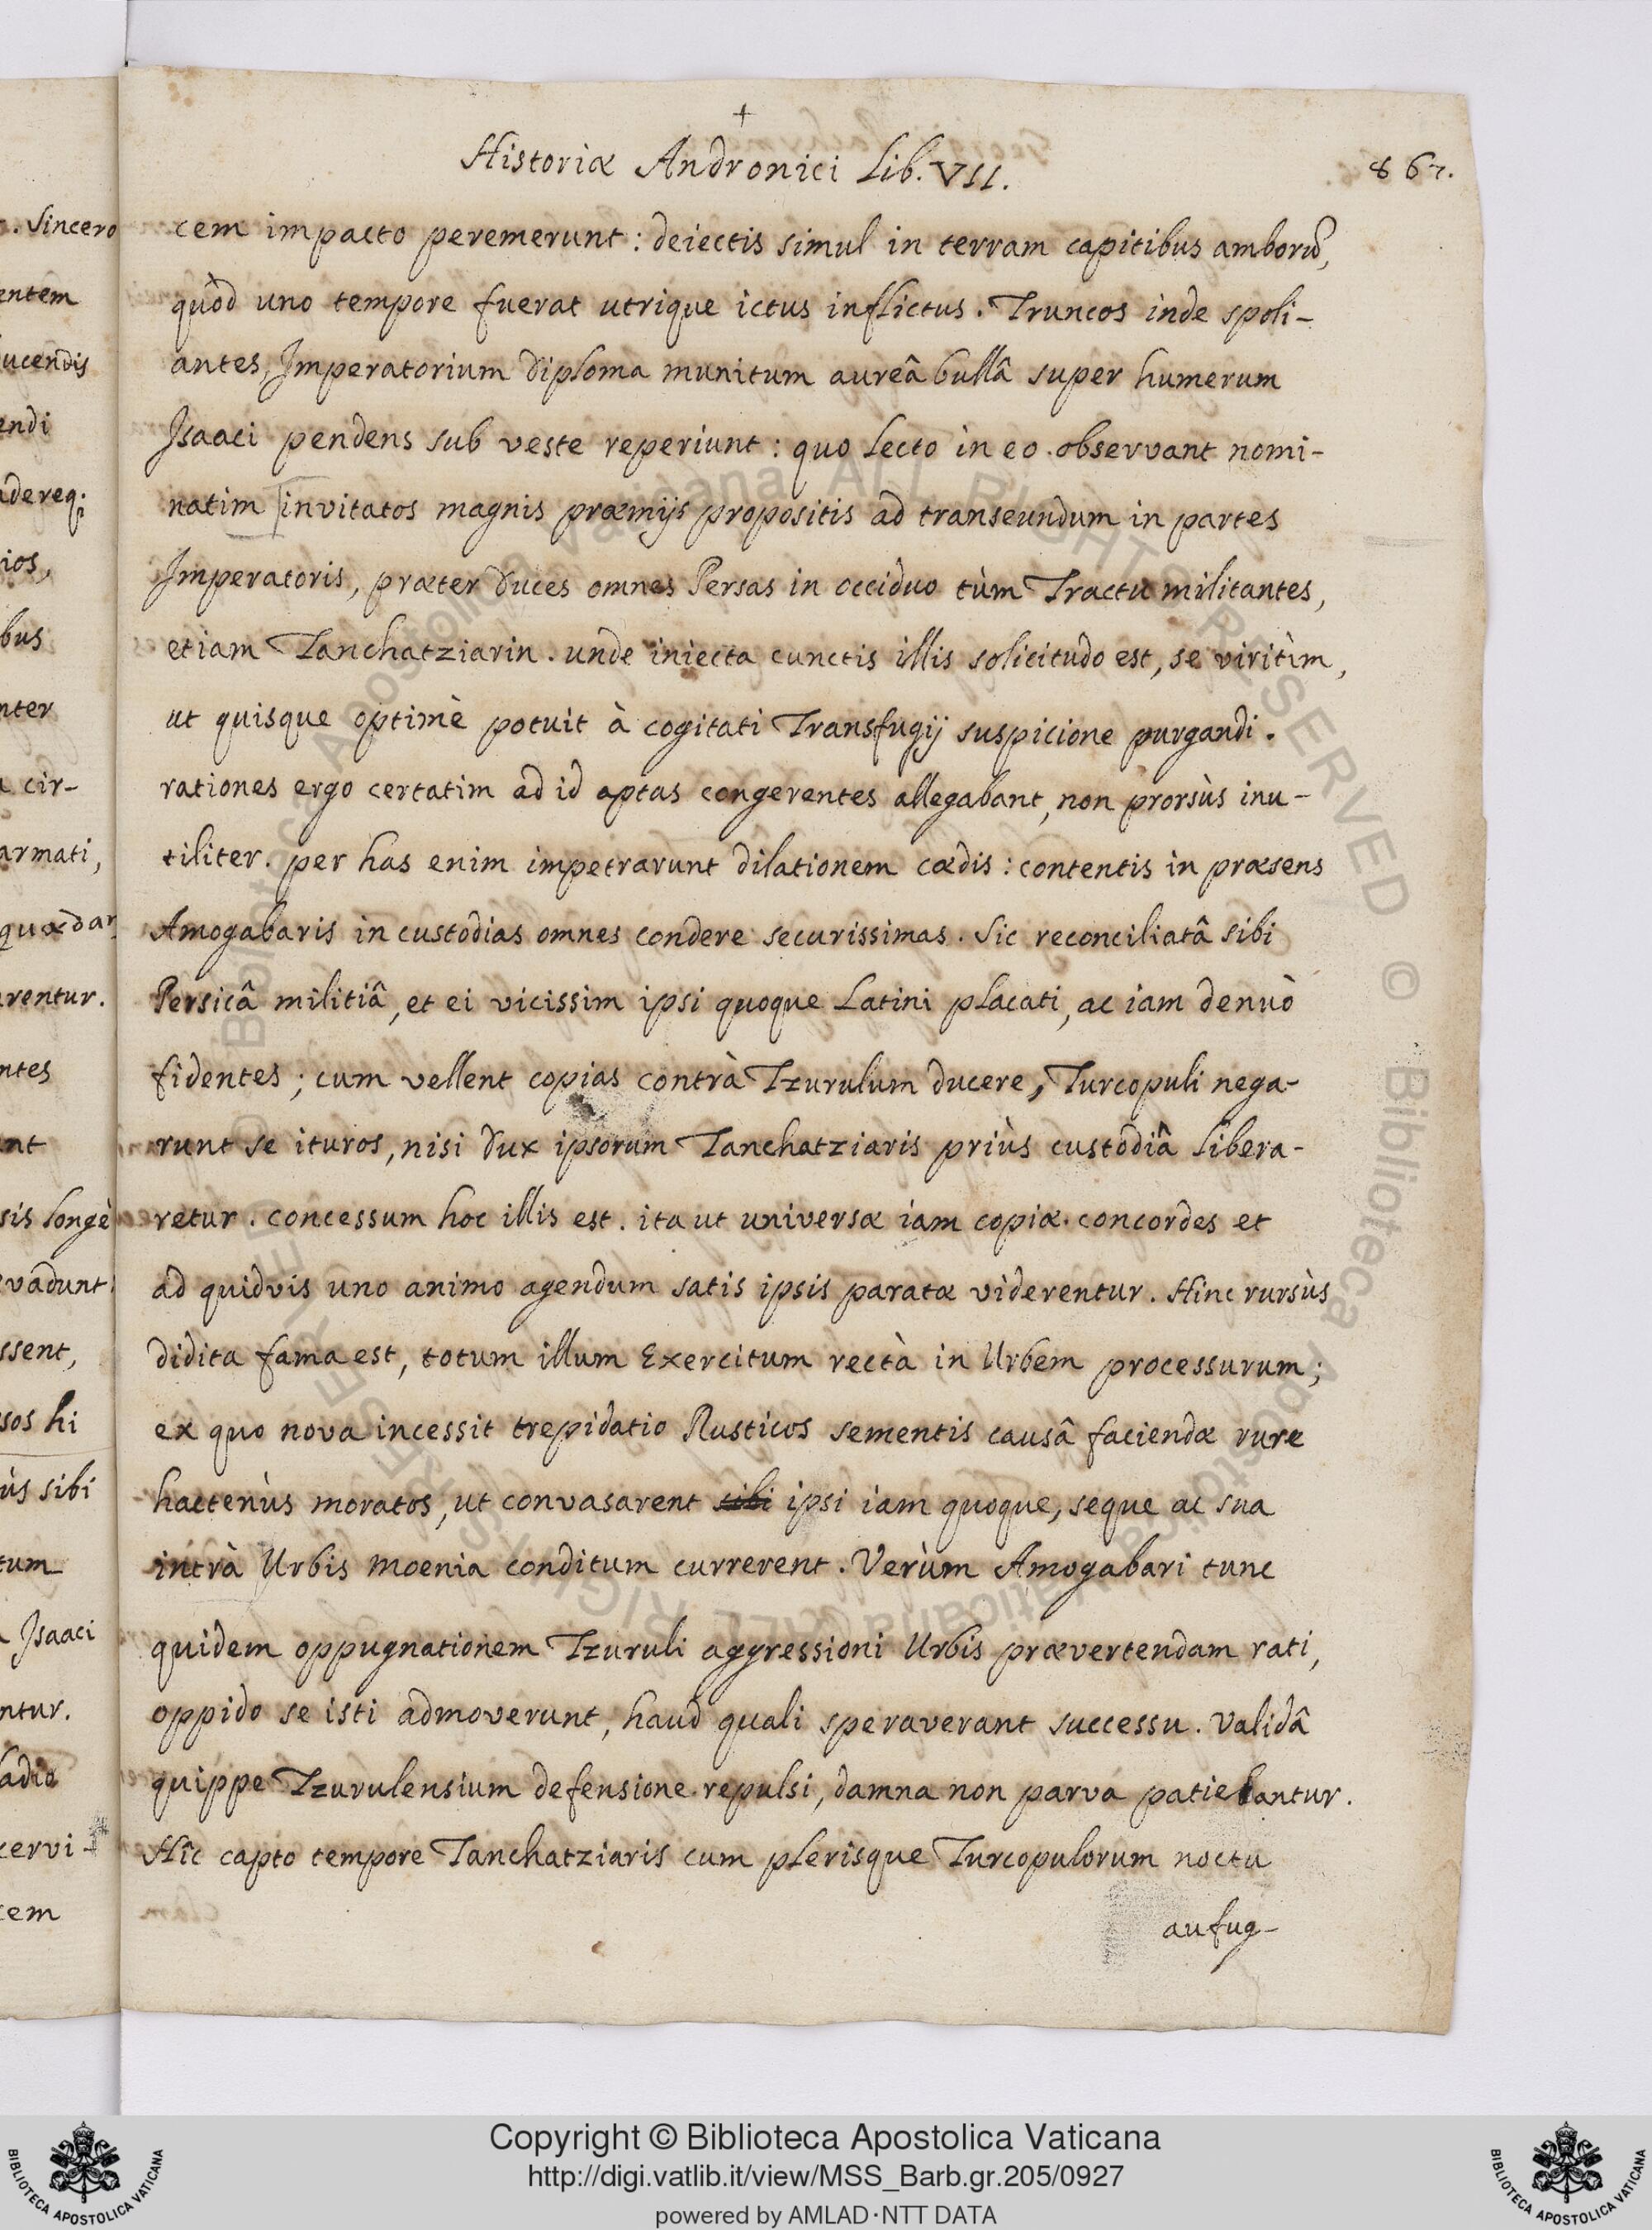 +
Historiæ Andronici Lib. VII.
867.
cem impacto peremerunt: deiectis simul in terram capitibus amborũ,
quòd uno tempore fuerat utrique ictus inflictus. Truncos inde spoli-
antes, Imperatorium diploma munitum aureâ bullâ super humerum
Isaaci pendens sub veste reperiunt: quo lecto in eo observant nomi-
natim invitatos magnis præmijs propositis ad transeundum in partes
Imperatoris, præter duces omnes Persas in occiduo tùm Tractu militantes,
etiam Tanchatziarin. unde iniecta cunctis illis solicitudo est, se viritìm,
ut quisque optimè potuit à cogitati Transfugij suspicione purgandi.
rationes ergo certatim ad id aptas congerentes allegabant, non prorsùs inu-
tiliter. per has enim impetrarunt dilationem cædis: contentis in præsens
Amogabaris in custodias omnes condere securissimas. Sic reconciliatâ sibi
Persicâ militiâ, et ei vicissim ipsi quoque Latini placati, ac iam denuò
fidentes; cum vellent copias contrà Tzurulum ducere, Turcopuli nega-
runt se ituros, nisi dux ipsorum Tanchatziaris priùs custodiâ libera-
retur. concessum hoc illis est. ita ut universæ iam copiæ concordes et
ad quidvis uno animo agendum satis ipsis paratæ viderentur. Hinc rursùs
didita fama est, totum illum Exercitum rectà in Urbem processurum;
ex quo nova incessit trepidatio Rusticos sementis causâ faciendæ rure
hactenùs moratos, ut convasarent sibi ipsi iam quoque, seque ac sua
intrà Urbis moenia conditum currerent. Verùm Amogabari tunc
quidem oppugnationem Tzuruli aggressioni Urbis prævertendam rati,
oppido se isti admoverunt, haud quali speraverant successu. validâ
quippe Tzurulensium defensione repulsi, damna non parva patiebantur.
Hîc capto tempore Tanchatziaris cum plerisque Turcopulorum noctu
aufug-
. Sincero
entem
ucendis
endi
adereq;
ios,
bus
nter
cir-
armati,
rentur.
ntes
nt
sis longè
evadunt
ssent,
sos hi
ùs sibi
tum
Isaaci
ntur.
ladio
cervi-
cem
Copyright © Biblioteca Apostolica Vaticana
http://digi.vatlib.it/view/MSS_Barb.gr.205/0927
powered by AMLAD·NTT DATA
BIBLIOTECA APOSTOLICA VATICANA
BIBLIOTECA APOSTOLICA VATICANA